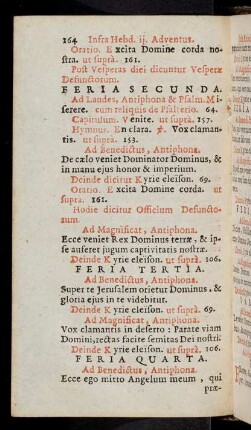 164 Infra Hebd. ij. Adventus.
Oratio. Excita Domine corda no-
stra. ut suprà. 161.
Post Vesperas diei dicuntur Vesperæ
Defunctorum.
FERIA SECUNDA.
Ad Laudes, Antiphona & Psalm. Mi-
serere. cum reliquis de Psalterio. 64.
Capitulum. Venite. ut suprà. 157.
Hymnus. En clara. ℣. Vox claman-
tis. ut suprà. 153.
Ad Benedictus, Antiphona.
De cælo veniet Dominator Dominus, &
in manu ejus honor & imperium.
Deinde dicitur Kyrie eleison. 69.
Oratio. Excita Domine corda. ut
suprà. 161.
Hodie dicitur Officium Defuncto-
rum.
Ad Magnificat, Antiphona.
Ecce veniet Rex Dominus terræ, & ip-
se auferet jugum captivitatis nostræ.
Deinde Kyrie eleison. ut suprà. 106.
FERIA TERTIA.
Ad Benedictus, Antiphona.
Super te Jerusalem orietur Dominus, &
gloria ejus in te videbitur.
Deinde Kyrie eleison. ut suprà. 69.
Ad Magnificat, Antiphona.
Vox clamantis in deserto: Parate viam
Domini, rectas facite semitas Dei nostri.
Deinde Kyrie eleison. ut suprà. 106.
FERIA QUARTA.
Ad Benedictus, Antiphona.
Ecce ego mitto Angelum meum, qui
præ-